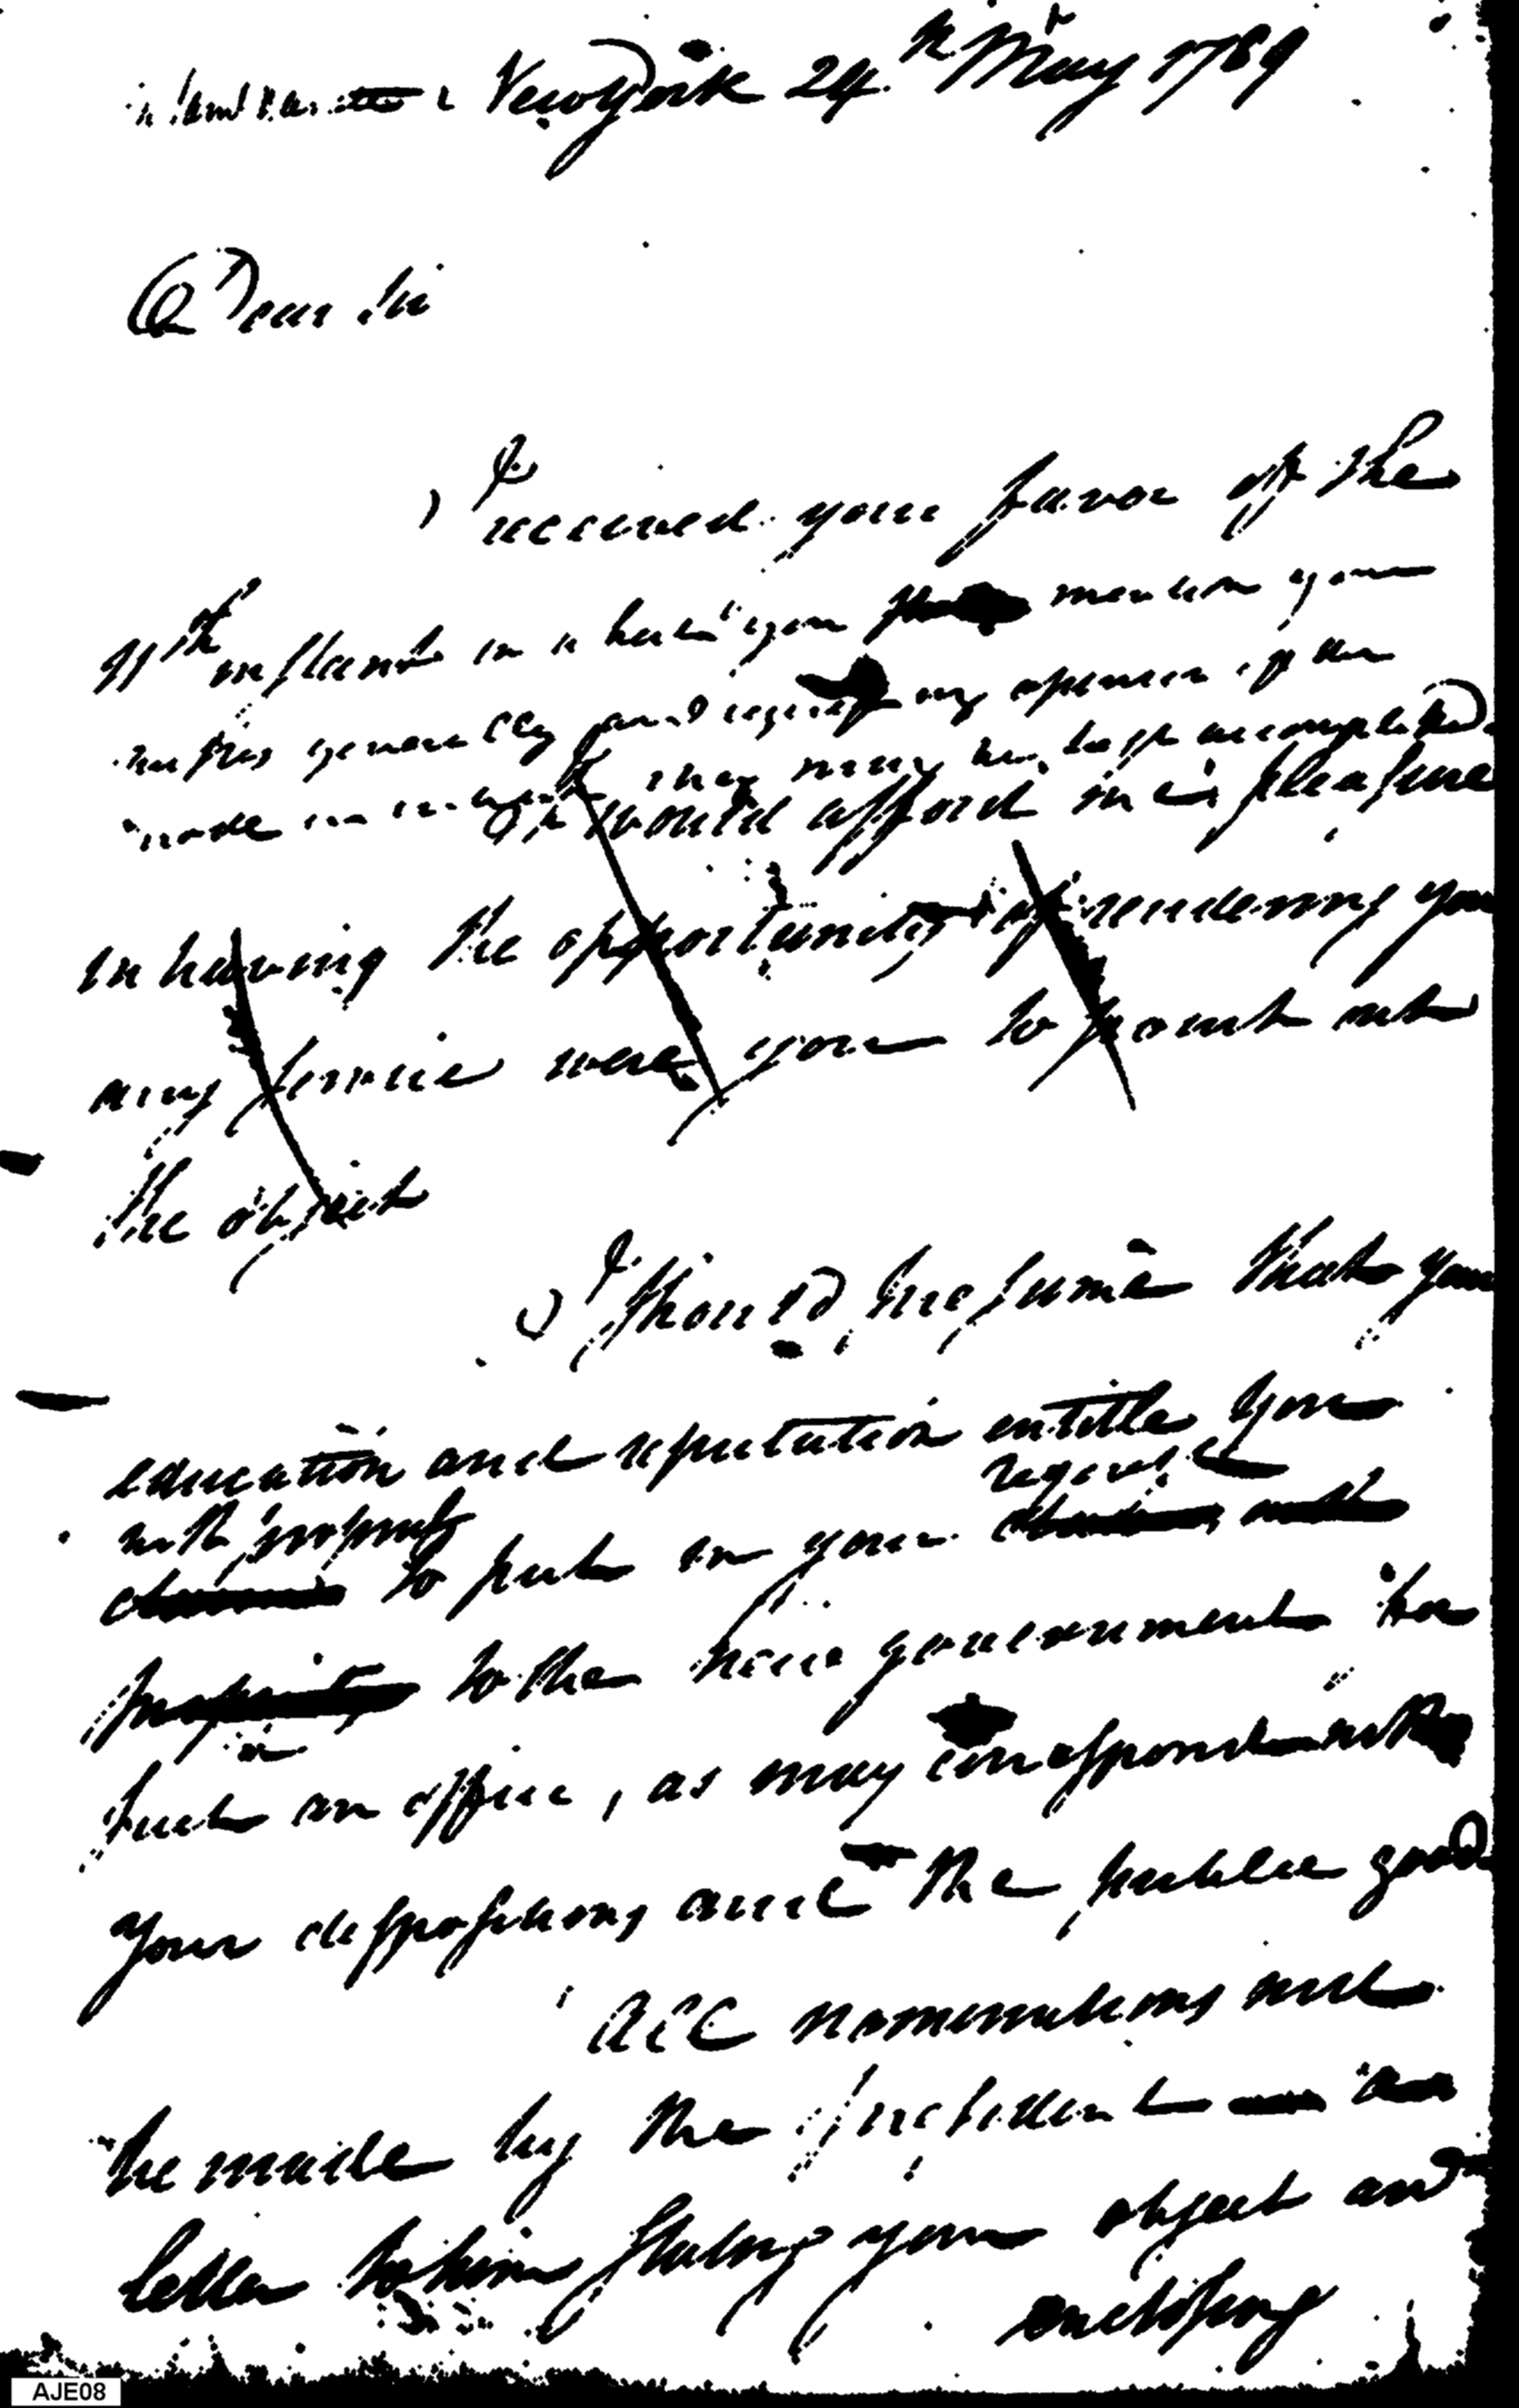 New York 24th May 1789
Dear Sir
I received your favor of the
11th instant in which you mention your
wishes generally and request my opinion of the
mode in which they may be best accomplished
It would afford me pleasure
in having the opportunity of rendering you
any service were you to point out
the object
I should presume that your
education and reputation entitle you
regard
with propriety
claims to put in your
to the new government for
such an office, as may correspond with
your dispositions and the public good
All nominations will
be made by the president
letter to him stating your object and
enclosing
AJE08